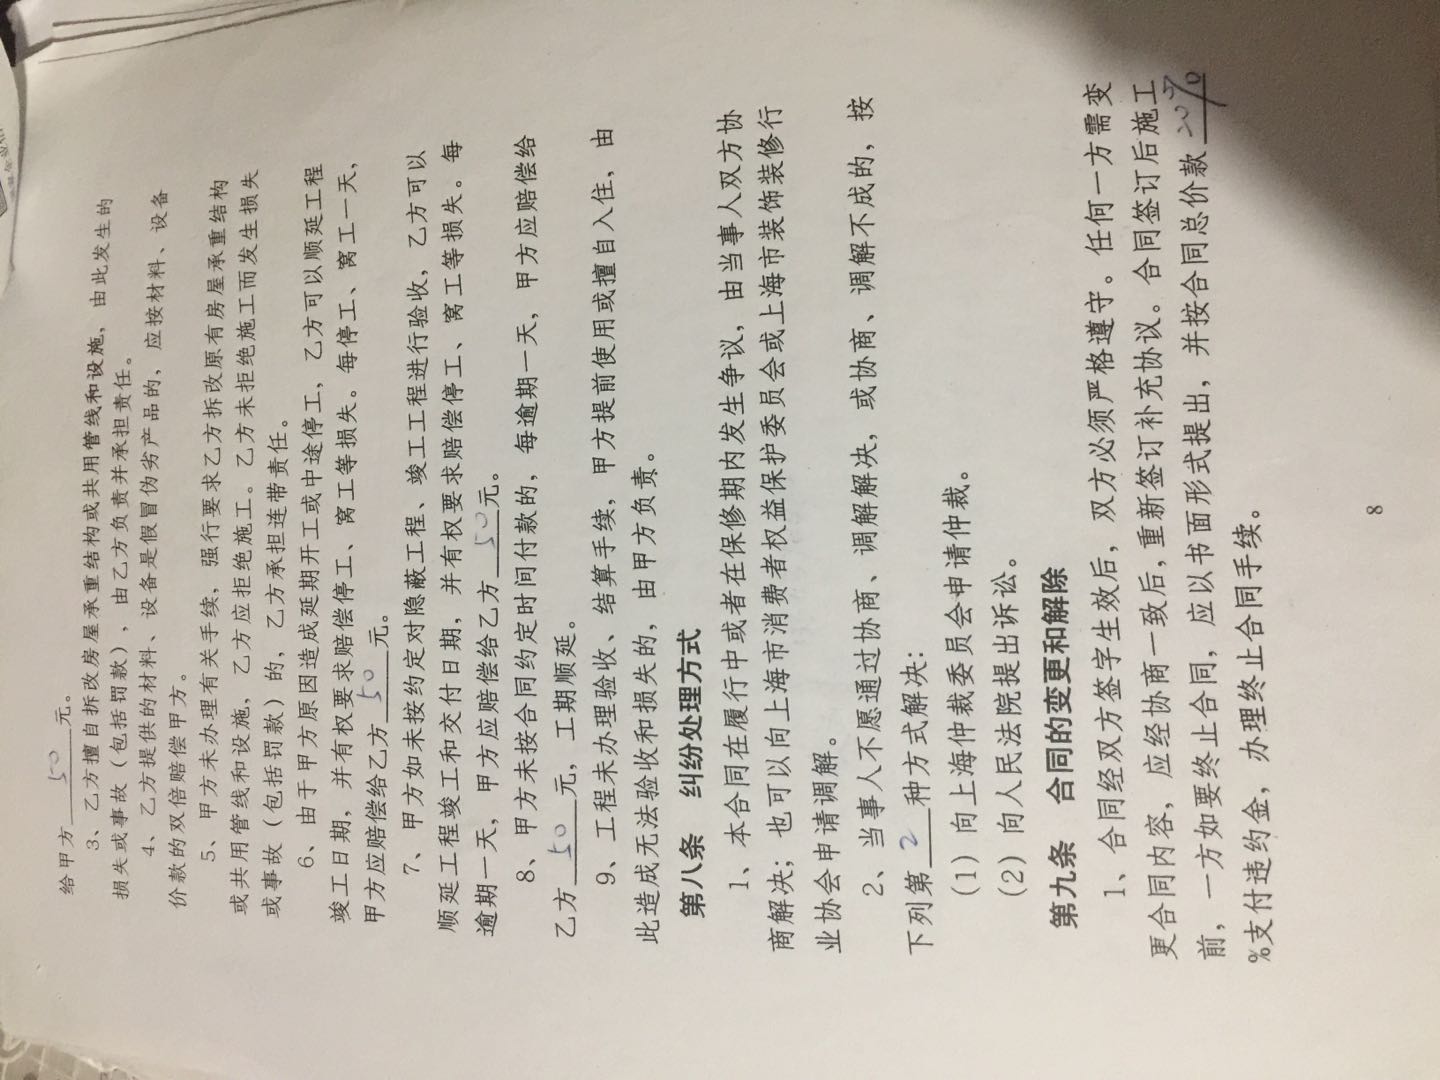 给甲方50元。
3、乙方擅自拆改房屋承重结构或共用管线和设施，由此发生的
损失或事故（包括罚款），由乙方负责并承担责任。
4、乙方提供的材料、设备是假冒伪劣产品的，应按材料、设备
价款的双倍赔偿甲方。
5、甲方未办理有关手续，强行要求乙方拆改原有房屋承重结构
或共用管线和设施，乙方应拒绝施工。乙方未拒绝施工而发生损失
或事故（包括罚款）的，乙方承担连带责任。
6、由于甲方原因造成延期开工或中途停工，乙方可以顺延工程
竣工日期，并有权要求赔偿停工、窝工等损失。每停工、窝工一天，
甲方应赔偿给乙方50元。
7、甲方如未按约定对隐蔽工程、竣工工程进行验收，乙方可以
顺延工程竣工和交付日期，并有权要求赔偿停工、窝工等损失。每
逾期一天，甲方应赔偿给乙方50元。
8、甲方未按合同约定时间付款的，每逾期一天，甲方应赔偿给
乙方50元，工期顺延。
9、工程未办理验收、结算手续，甲方提前使用或擅自入住，由
此造成无法验收和损失的，由甲方负责。
第八条 纠纷处理方式
1、本合同在履行中或者在保修期内发生争议，由当事人双方协
商解决；也可以向上海市消费者权益保护委员会或上海市装饰装修行
业协会申请调解。
2、当事人不愿通过协商、调解解决，或协商、调解不成的，按
下列第2种方式解决：
（1）向上海仲裁委员会申请仲裁。
（2）向人民法院提出诉讼。
第九条 合同的变更和解除
1、合同经双方签字生效后，双方必须严格遵守。任何一方需变
更合同内容，应经协商一致后，重新签订补充协议。合同签订后施工
前，一方如要终止合同，应以书面形式提出，并按合同总价款20%
%支付违约金，办理终止合同手续。
8